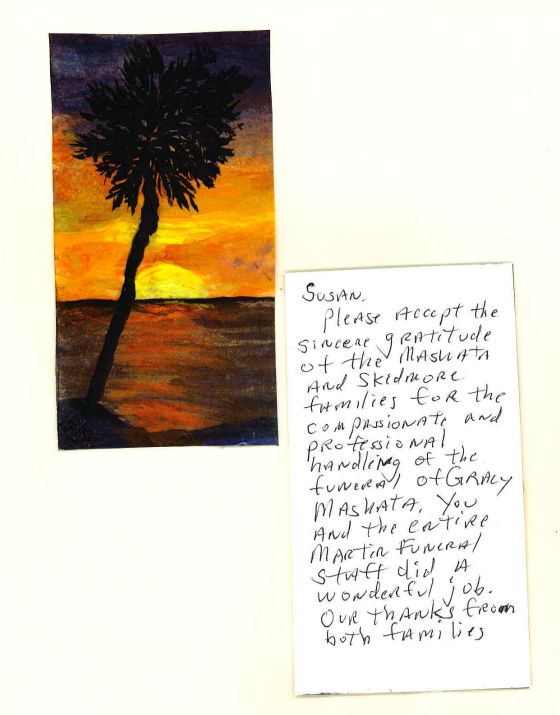 Susan,
Please accept the
sincere gratitude
of the Mashata
and Skidmore
families for the
compassionate and
professional
handling of the
funeral of Gracy
Mashata. You
and the entire
Martin Funeral
staff did a
wonderful job.
Our thanks from
both families